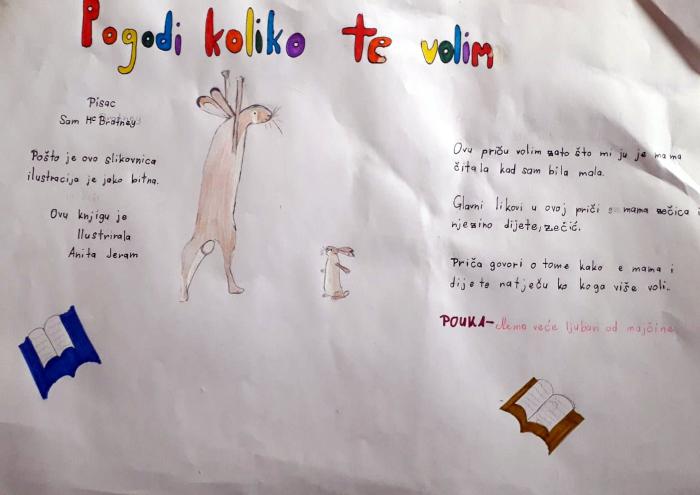 Pogodi koliko te volim
Pisac
Sam Mc Bratney
Pošto je ovo slikovnica
ilustracija je jako bitna.
Ovu knjigu je
Ilustrirala
Anita Jeram
Ovu priču volim zato što mi ju je mama
čitala kad sam bila mala.
Glavni likovi u ovoj priči s mama zečica i
njezino dijete, zečić.
Priča govori o tome kako e mama i
dijete natječu ko koga više voli.
POUKA-Nema veće ljubavi od majčine